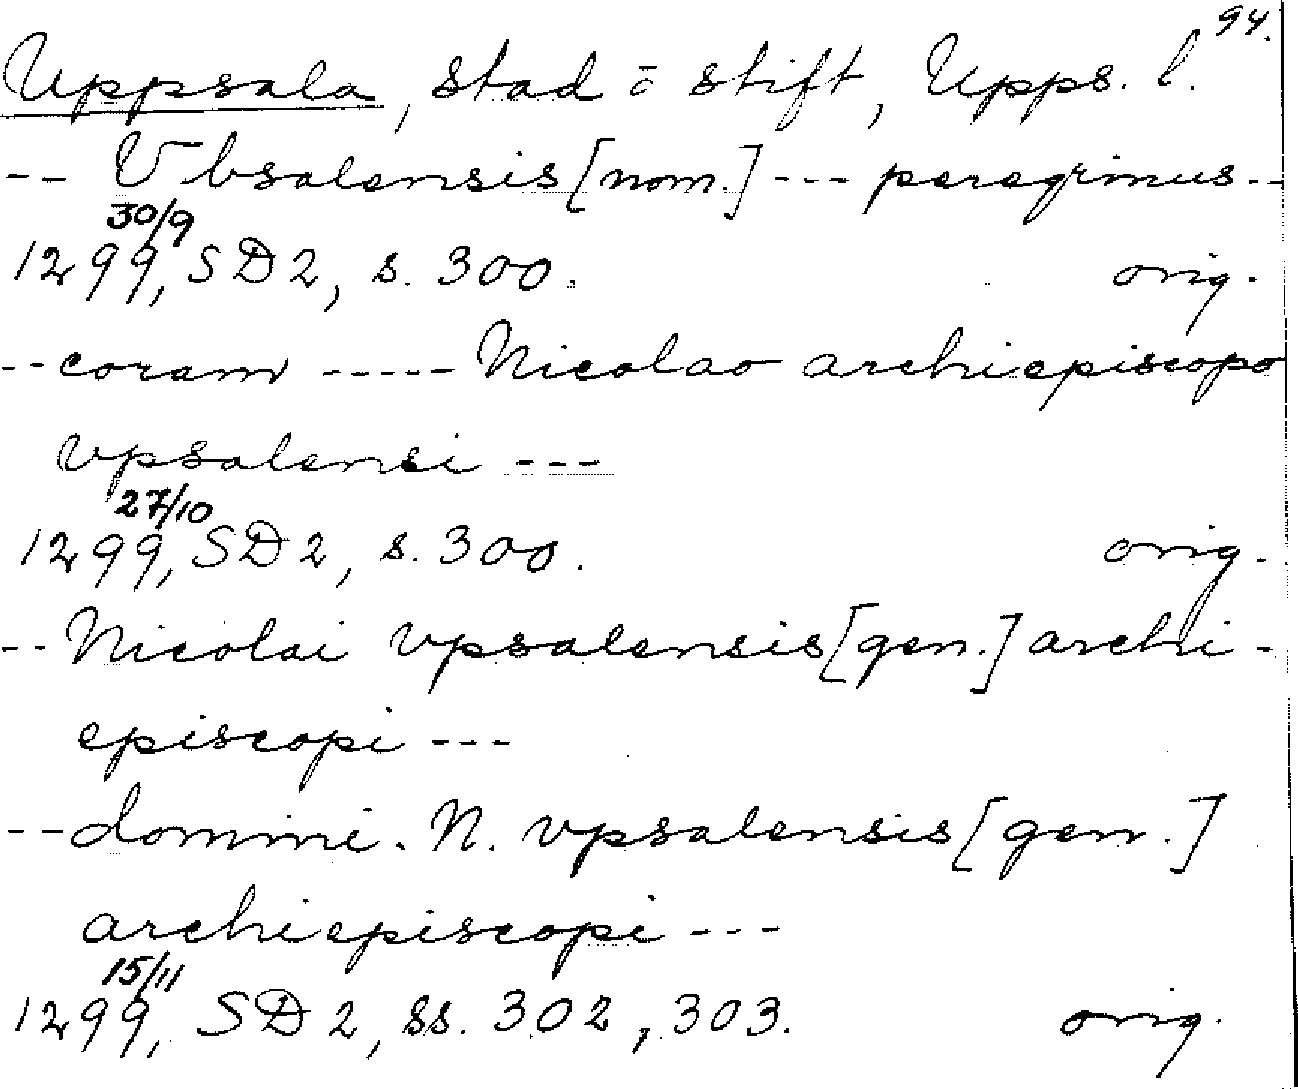 94.
Uppsala, stad o stift, Upps. l.
-- Vbsalensis [nom.] --- peregrinus --
30/9
1299, SD 2, s. 300. orig.
-- coram ----- Nicolao archiepiscopo
vpsalensi ---
27/10
1299, SD 2, s. 300. orig.
-- Nicolai vpsalensis [gen.] archi-
episcopi ---
-- domini. N. vpsalensis [gen.]
archiepiscopi ---
15/11
1299, SD 2, ss. 302, 303. orig.